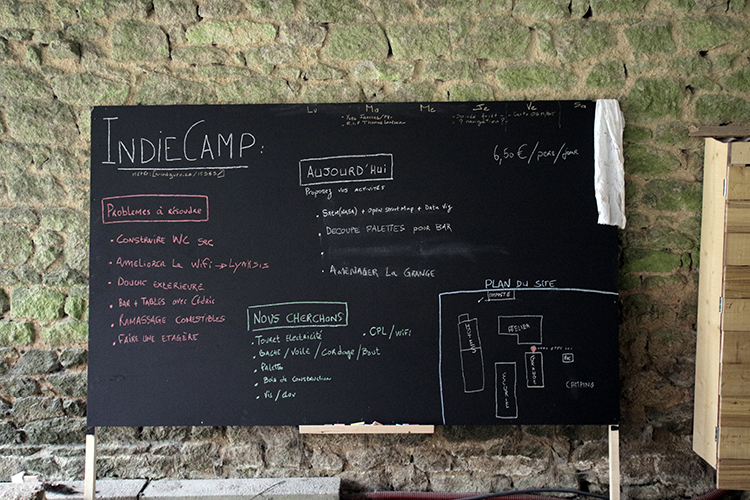 Lu Ma Me Je Ve Sa
INDIECAMP:
6,50 €/pers/jour
AUJOURD'HUI
Proposez vos activités
+ Open Street Map + Data Viz
• DECOUPE PALETTES POUR BAR
•
• AMÉNAGER LA GRANGE
Problèmes à résoudre
• CONSTRUIRE WC SEC
• AMELIORER LA WIFI → LYNXSIS
• DOUCHE EXTERIEURE
• BAR + TABLES avec Cédric
• RAMASSAGE COMESTIBLES
• FAIRE UNE ETAGÈRE
NOUS CHERCHONS
• Touret Electricité
• CPL/WiFi
• Bache/Voile/Cordage/Bout
• Palette
• Bois de construction
• Vis/Clou
PLAN DU SITE
ATELIER
GRANGE
WC
CAMPING